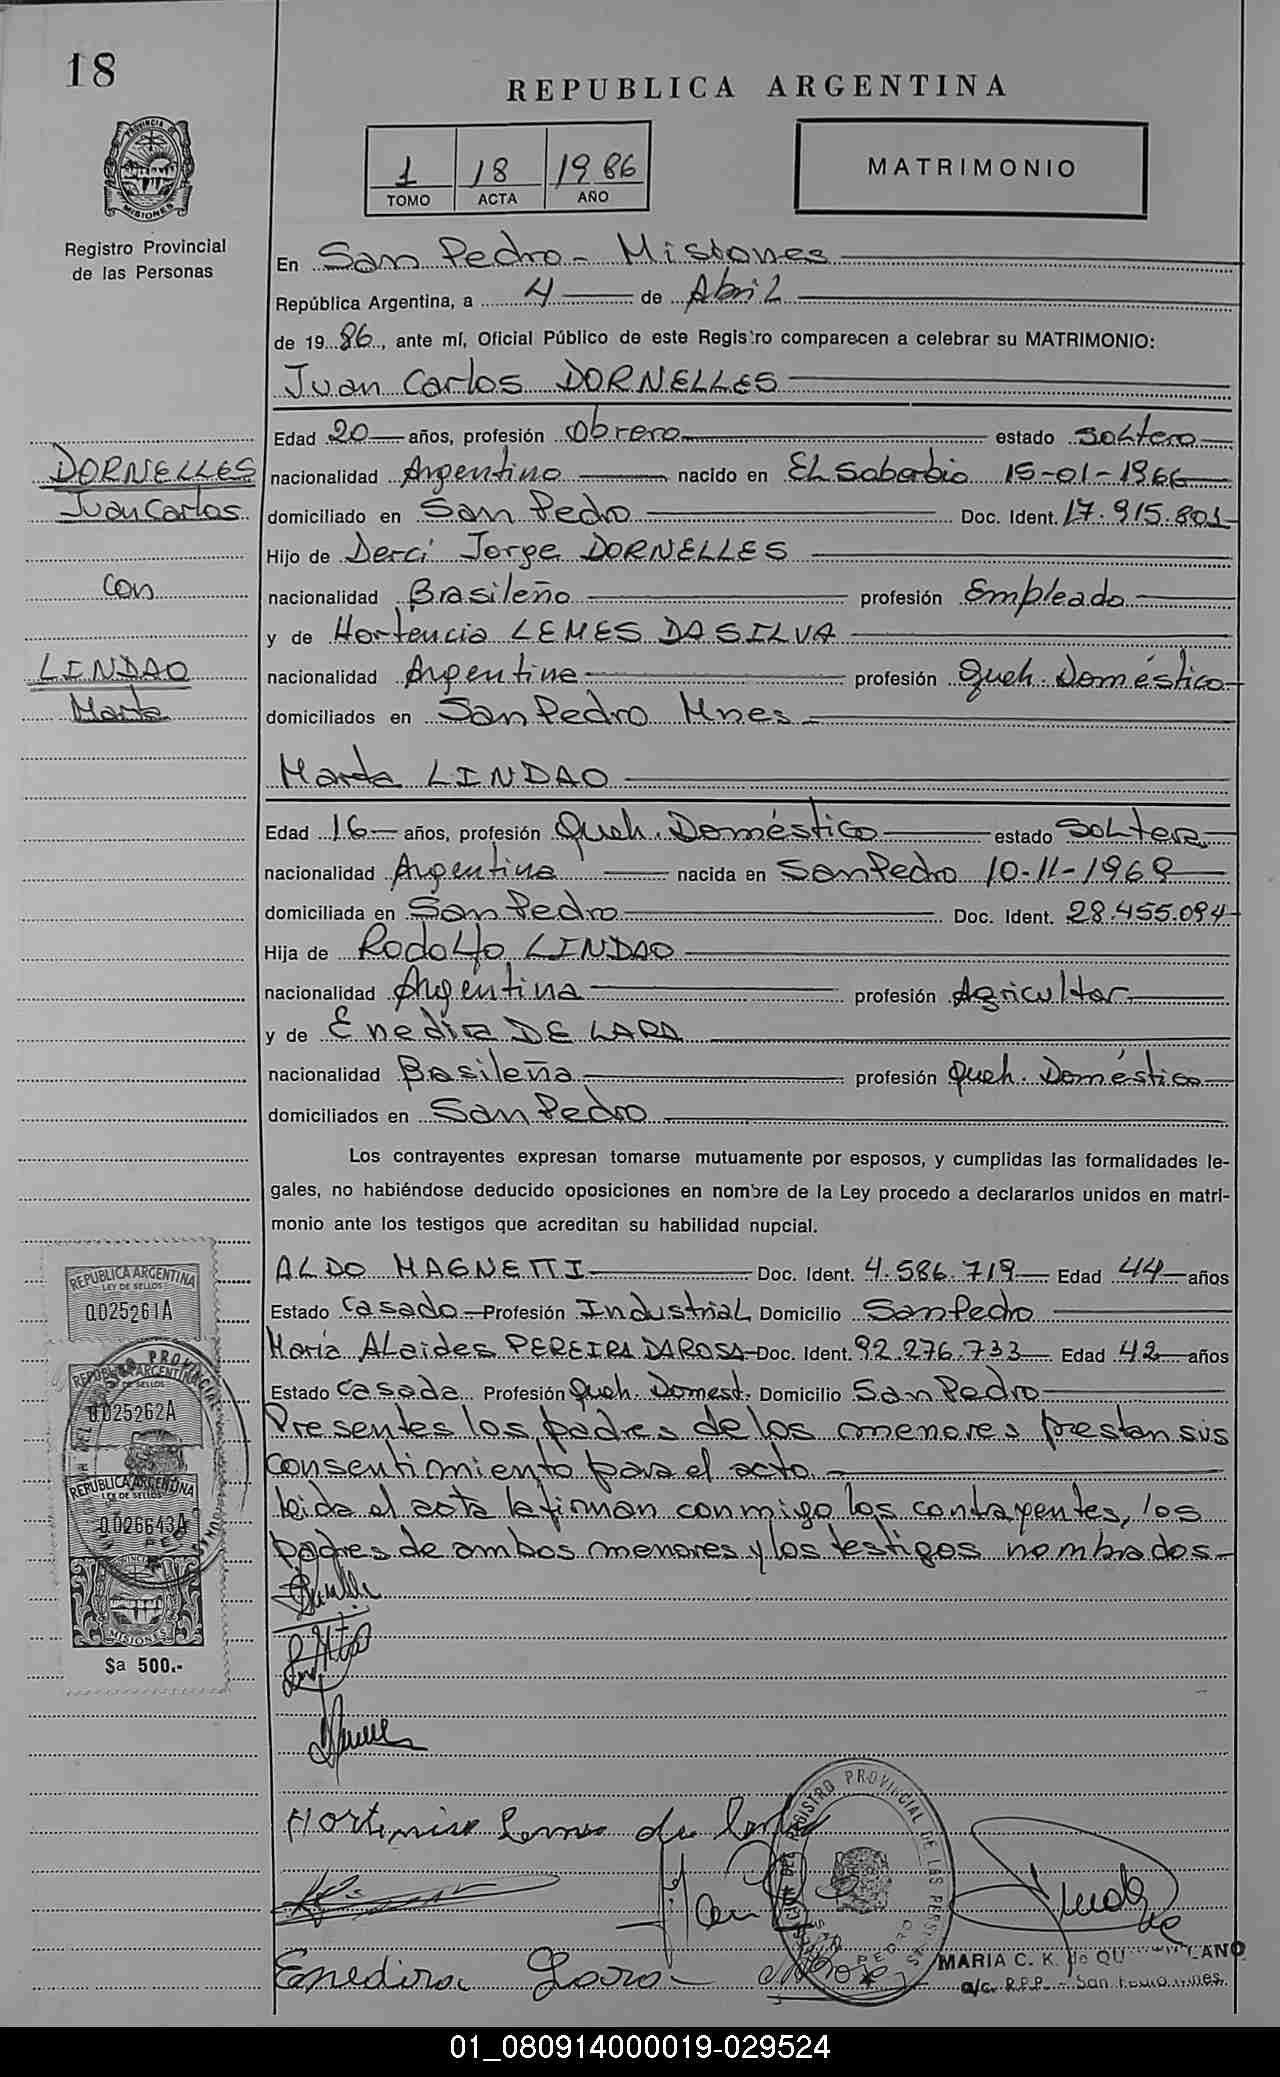 18
REPUBLICA ARGENTINA
1 18 1986
TOMO ACTA AÑO
MATRIMONIO
PROVINCIA DE MISIONES
Registro Provincial
de las Personas
En San Pedro - Misiones
República Argentina, a 4 de Abril
de 1986, ante mí, Oficial Público de este Registro comparecen a celebrar su MATRIMONIO:
Juan Carlos DORNELLES
Edad 20 años, profesión Obrero estado Soltero
DORNELLES
nacionalidad Argentino nacido en El Soberbio 15-01-1966
Juan Carlos
domiciliado en San Pedro Doc. Ident. 17.915.801
Hijo de Derci Jorge DORNELLES
con
nacionalidad Brasileño profesión Empleado
y de Hortencia LEMES DA SILVA
LINDAO
nacionalidad Argentina profesión Queh. Doméstico
Marta
domiciliados en San Pedro Mnes
Marta LINDAO
Edad 16 años, profesión Queh. Doméstico estado Soltera
nacionalidad Argentina nacida en San Pedro 10-11-1969
domiciliada en San Pedro Doc. Ident. 28.455.094
Hija de Rodolfo LINDAO
nacionalidad Argentina profesión Agricultor
y de Enedira DE LARA
nacionalidad Basileña profesión Queh. Doméstico
domiciliados en San Pedro
Los contrayentes expresan tomarse mutuamente por esposos, y cumplidas las formalidades le-
gales, no habiéndose deducido oposiciones en nombre de la Ley procedo a declararlos unidos en matri-
monio ante los testigos que acreditan su habilidad nupcial.
ALDO MAGNETTI Doc. Ident. 4.586.719 Edad 44 años
Estado Casado Profesión Industrial Domicilio San Pedro
María Alaides PEREIRA DA ROSA Doc. Ident. 92.276.733 Edad 42 años
Estado Casada Profesión Queh. Domest. Domicilio San Pedro
Presentes los padres de los menores prestan sus
consentimiento para el acto
leida el acta la firman conmigo los contrayentes, los
padres de ambos menores y los testigos nombrados
REPUBLICA ARGENTINA
LEY DE SELLOS
0025261A
REPUBLICA ARGENTINA
LEY DE SELLOS
0025262A
REPUBLICA ARGENTINA
LEY DE SELLOS
0026643A
MISIONES
$a 500.-
REGISTRO PROVINCIAL DE LAS PERSONAS
SAN PEDRO
Enedira Lara
MARIA C. K. de
a/c. R.P.P. - San
01_080914000019-029524